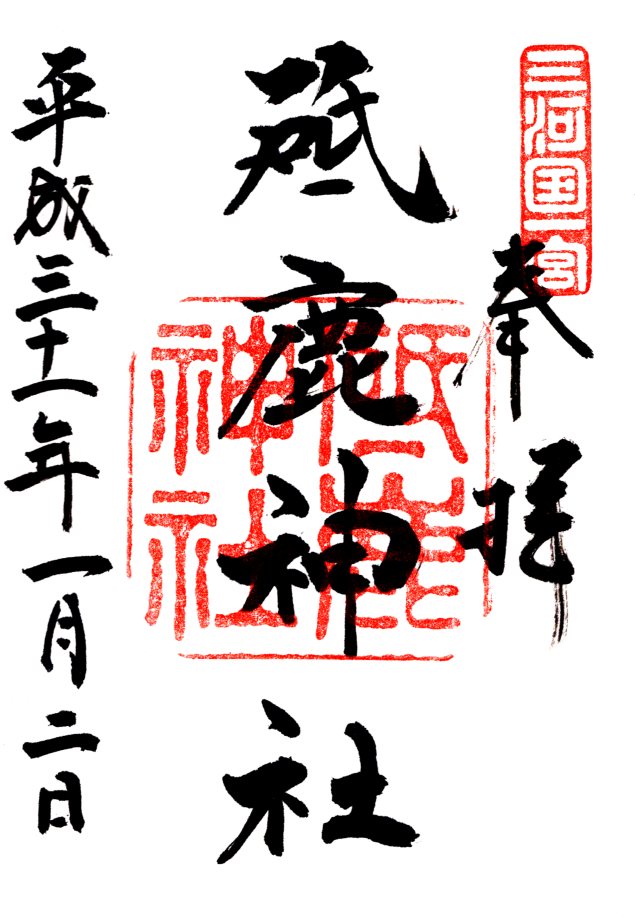 三河国一宮
奉拝
砥鹿神社
砥鹿神社
平成三十一年一月二日